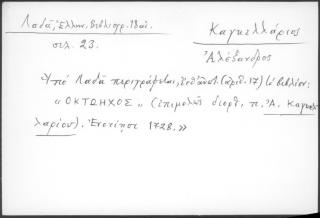 Λαδᾶ, Ἑλλην. Βιβλιογρ. 18 αἰ.
σελ. 23.
Καγκελλάριος
Ἀλέξανδρος
Ὑπό Λαδᾶ περιγράφεται, (ἀριθ. 17) τό βιβλίον:
"ΟΚΤΩΗΧΟΣ" (ἐπιμελῶς διορθ. π. Ἀ. Καγκελ-
λαρίου). Ἐνετίῃσι 1728.»